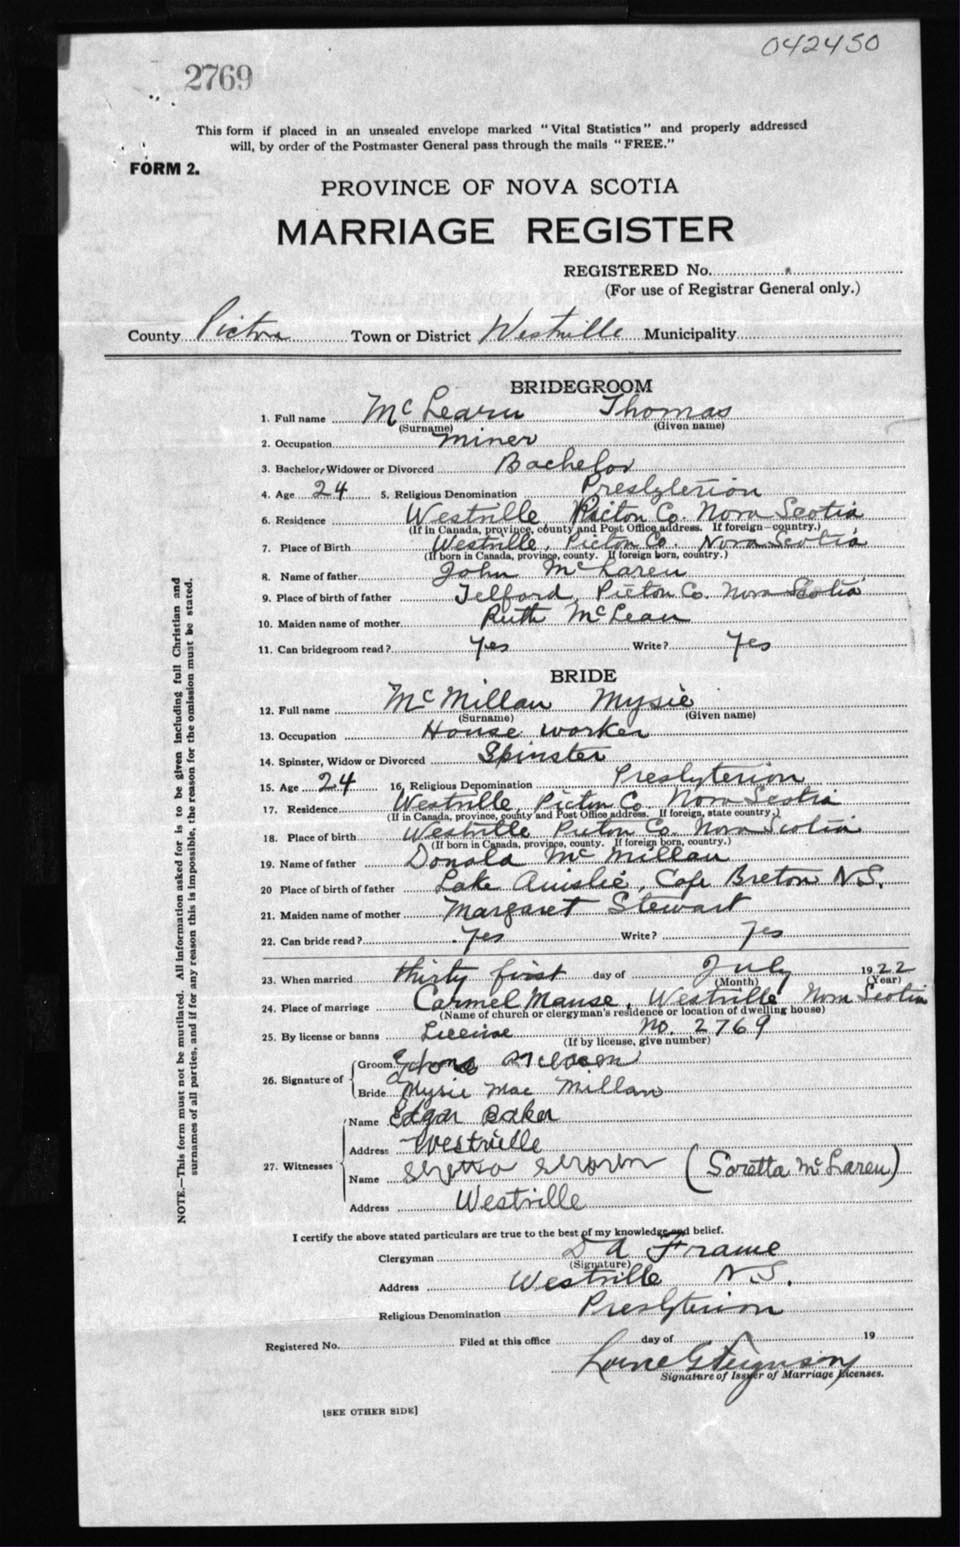 042450
2769
This form if placed in an unsealed envelope marked "Vital Statistics" and properly addressed
will, by order of the Postmaster General pass through the mails "FREE."
FORM 2.
PROVINCE OF NOVA SCOTIA
MARRIAGE REGISTER
REGISTERED No.
(For use of Registrar General only.)
County Pictou Town or District Westville Municipality
BRIDEGROOM
1. Full name McLearn Thomas
(Surname) (Given name)
2. Occupation miner
3. Bachelor, Widower or Divorced Bachelor
4. Age 24 5. Religious Denomination Presbyterion
6. Residence Westville Picton Co. Nova Scotia
(If in Canada, province, county and Post Office address. If foreign—country.)
7. Place of Birth Westville, Picton Co. Nova Scotia
(If born in Canada, province, county. If foreign born, country.)
8. Name of father John McLaren
9. Place of birth of father Telford, Picton Co. Nova Scotia
10. Maiden name of mother Ruth McLean
11. Can bridegroom read? Yes Write? Yes
BRIDE
12. Full name McMillan Mysie
(Surname) (Given name)
13. Occupation House worker
14. Spinster, Widow or Divorced Spinster
15. Age 24 16. Religious Denomination Presbyterion
17. Residence Westville, Picton Co. Nova Scotia
(If in Canada, province, county and Post Office address. If foreign, state country.)
18. Place of birth Westville Picton Co. Nova Scotia
(If born in Canada, province, county. If foreign born, country.)
19. Name of father Donald McMillan
20 Place of birth of father Lake Ainslie, Cape Breton N.S.
21. Maiden name of mother Margaret Stewart
22. Can bride read? Yes Write? Yes
23. When married thirty first day of July 1922
(Month) (Year)
24. Place of marriage Carmel Manse, Westville Nova Scotia
(Name of church or clergyman's residence or location of dwelling house)
25. By license or banns License No. 2769
(If by license, give number)
26. Signature of
Groom
Bride Mysie Mac Millan
27. Witnesses
Name Edgar Baker
Address Westville
Name (Soretta McLaren)
Address Westville
I certify the above stated particulars are true to the best of my knowledge and belief.
Clergyman D A Frame
(Signature)
Address Westville N.S.
Religious Denomination Presbyterion
Registered No. Filed at this office day of 19
Lorne G Ferguson
Signature of Issuer of Marriage Licenses.
[SEE OTHER SIDE]
NOTE.—This form must not be mutilated. All information asked for is to be given including full Christian and
surnames of all parties, and if for any reason this is impossible, the reason for the omission must be stated.